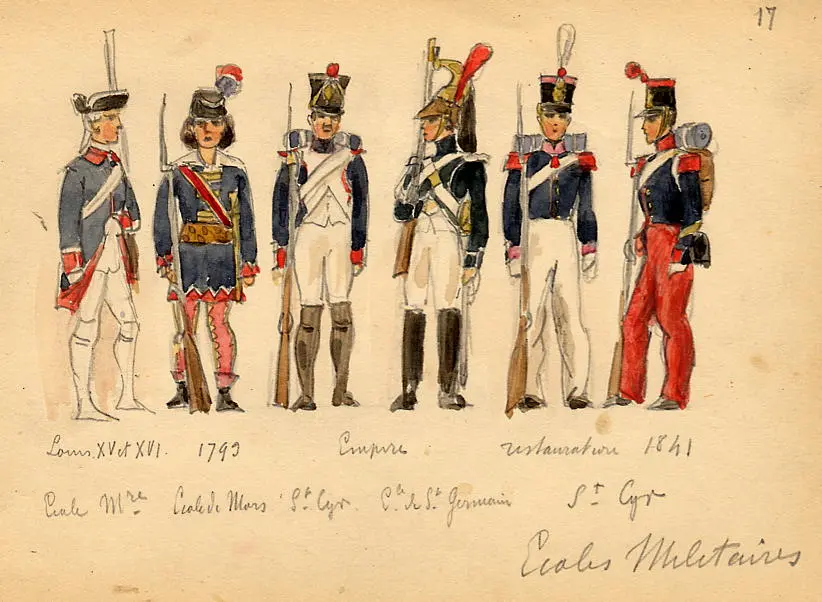 17
Louis XV et XVI. 1793 Empire. restauration 1841
Ecole Mre Ecole de Mars St Cyr. Cle de St Germain St Cyr
Ecoles Militaires